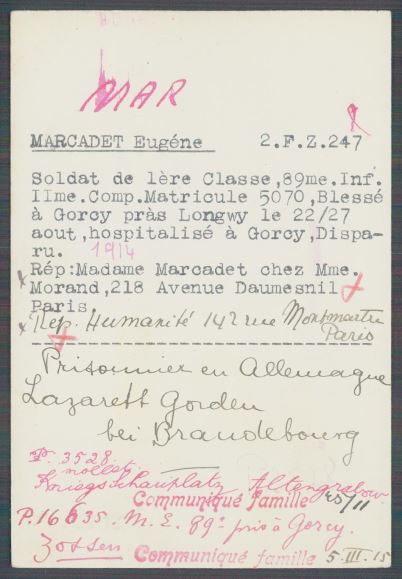 MAR
MARCADET Eugéne 2.F.Z.247
Soldat de 1ère Classe,89me.Inf.
IIme.Comp.Matricule 5070,Blessé
à Gorcy près Longwy le 22/27
aout,hospitalisé à Gorcy,Dispa-
ru. 1914
Rép:Madame Marcadet chez Mme.
Morand,218 Avenue Daumesnil
Paris
Rép. Humanité 142 rue Montmartre
Paris
Prisonnier en Allemagne
Lazarett Gorden
bei Brandebourg
P. 3528.
Kriegsschauplatz Altengrabow
Communiqué famille 25/11
P.16635. M.E. 89e pris à Gorcy.
Zossen Communiqué famille 5-III-15